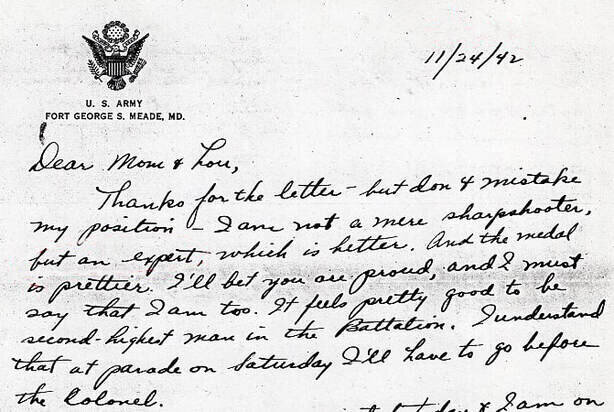 11/24/42
U. S. ARMY
FORT GEORGE S. MEADE, MD.
Dear Mom & Lou,
Thanks for the letter - but don't mistake
my position - I am not a mere sharpshooter,
but an expert, which is better. And the medal
is prettier. I'll bet you are proud, and I must
say that I am too. It feels pretty good to be
second-highest man in the Battalion. I understand
that at parade on Saturday I'll have to go before
the Colonel.
I am on